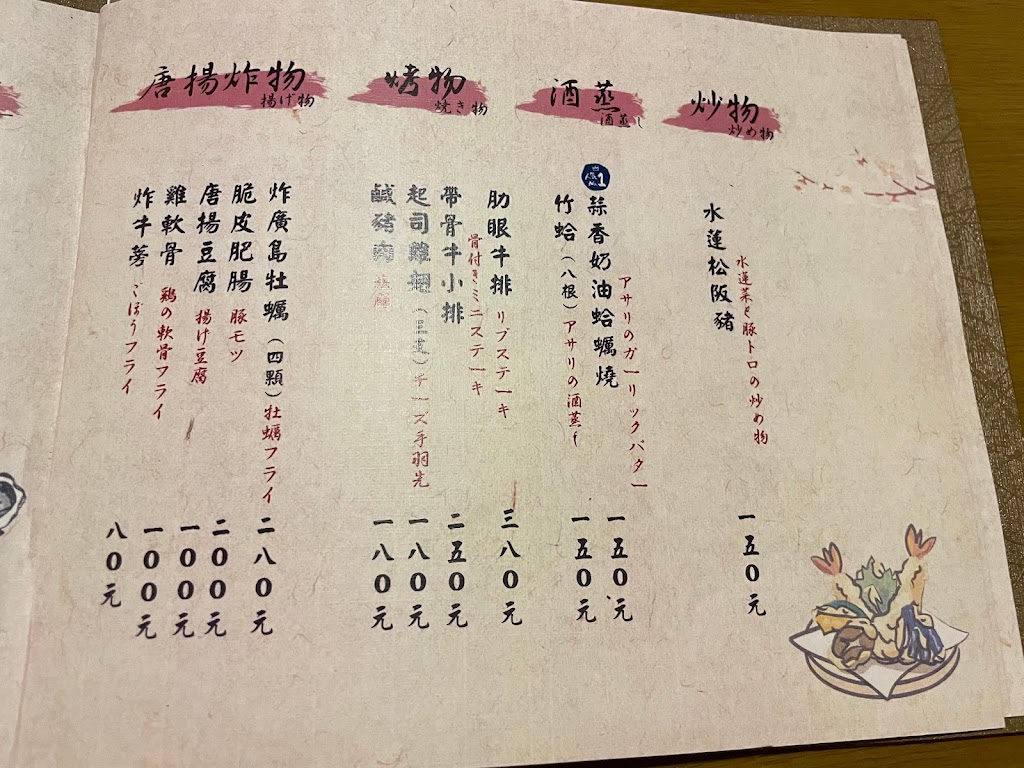 炒物
炒め物
水蓮松阪豬
水蓮菜と豚トロの炒め物
一五0元
酒蒸
酒蒸し
No.1
蒜香奶油蛤蠣燒
アサリのガーリックバター
一五0元
竹蛤（八根）アサリの酒蒸し
一五0元
烤物
焼き物
肋眼牛排 リブステーキ
三八0元
帶骨牛小排
骨付きミニステーキ
二五0元
起司雞翅 チーズ手羽先
一八0元
鹹豬肉
一八0元
唐揚炸物
揚げ物
炸廣島牡蠣（四顆）牡蠣フライ
二八0元
脆皮肥腸 豚モツ
二00元
唐揚豆腐 揚げ豆腐
一00元
雞軟骨 鶏の軟骨フライ
一00元
炸牛蒡 ごぼうフライ
八0元